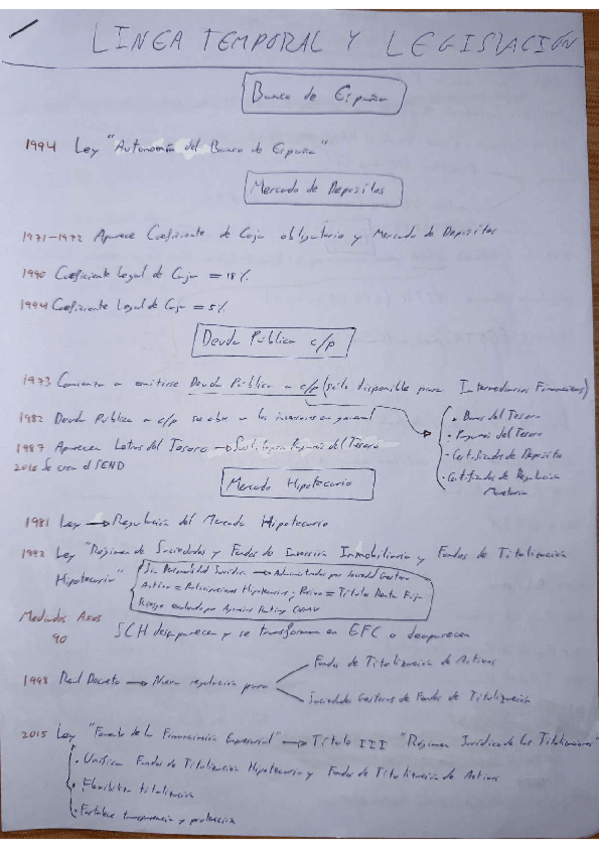 LINEA TEMPORAL Y LEGISLACIÓN
Banco de España
1994 Ley "Autonomía del Banco de España"
Mercado de Depósitos
1971-1972 Aparece Coeficiente de Caja obligatorio y Mercado de Depósitos
1990 Coeficiente Legal de Caja = 18%
1994 Coeficiente Legal de Caja = 5%
Deuda Pública c/p
1973 Comienza a emitirse Deuda Pública a c/p (sólo disponible para Intermediarios Financieros)
· Bonos del Tesoro
· Pagarés del Tesoro
· Certificados de Depósito
· Certificados de Regulación
Monetaria
1982 Deuda Pública a c/p se abre a los inversores en general
1987 Aparecen Letras del Tesoro → Sustituyen Pagarés del Tesoro
Se crea el SEND
Mercado Hipotecario
1981 Ley → Regulación del Mercado Hipotecario
1992 Ley "Régimen de Sociedades y Fondos de Inversión Inmobiliaria y Fondos de Titulización
Hipotecaria"
Sin Personalidad Jurídica → Administrados por Sociedad Gestora
Activo = Participaciones Hipotecarias; Pasivo = Títulos Renta Fija
Riesgo evaluado por Agencias Rating CNMV
Mediados Años
90 SCH desaparecen y se transforman en EFC o desaparecen
1998 Real Decreto → Nueva regulación para
Fondos de Titulización de Activos
Sociedades Gestoras de Fondos de Titulización
2015 Ley "Fomento de la Financiación Empresarial" → Título III "Régimen Jurídico de las Titulizaciones"
· Unifica Fondos de Titulización Hipotecaria y Fondos de Titulización de Activos
· Flexibiliza titulización
· Fortalece transparencia y protección